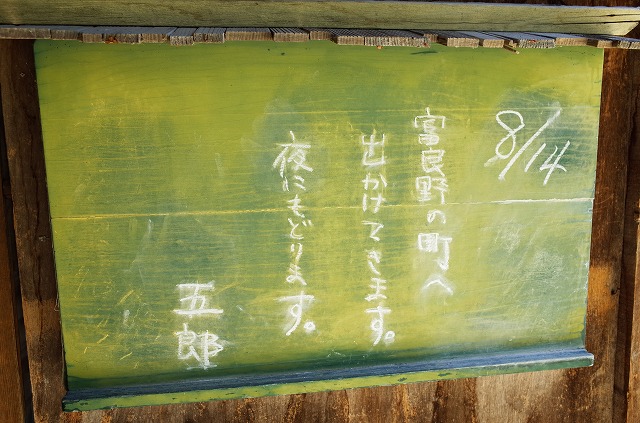 8/14
富良野の町へ
出かけてきます。
夜にもどります。
五郎